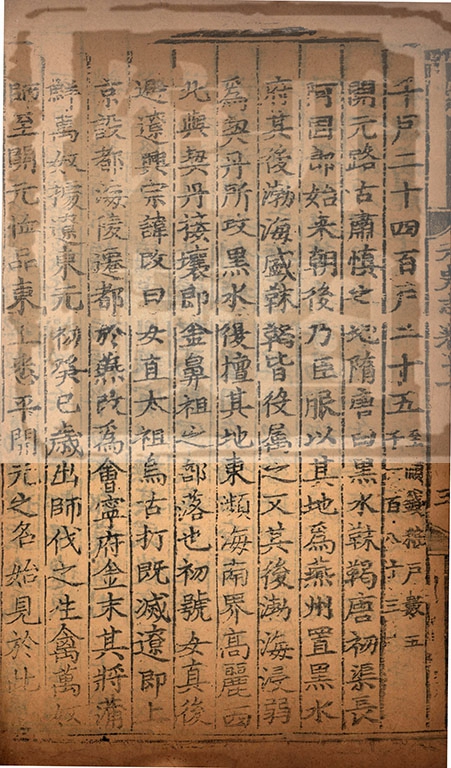 千戶二十四百戶二十五至順錢粮戶數五千一百八六三
開元路古肅慎之地隋唐曰黑水靺鞨唐初渠長
阿固郎始来朝後乃臣服以其地為燕州置黑水
府其後渤海盛靺鞨皆役属之又其後渤海浸弱
為契丹所攻黑水復擅其地東瀕海南界髙麗西
北與契丹接壤即金鼻祖之部落也初號女真後
避遼興宗諱改曰女直太祖烏古打既滅遼即上
京設都海陵遷都於燕改為會寧府金末其將蒲
鮮萬奴據遼東元初癸巳歲出師伐之生禽萬奴
師至開元恤品東土悉平開元之名始見於此
元史志卷十一
三